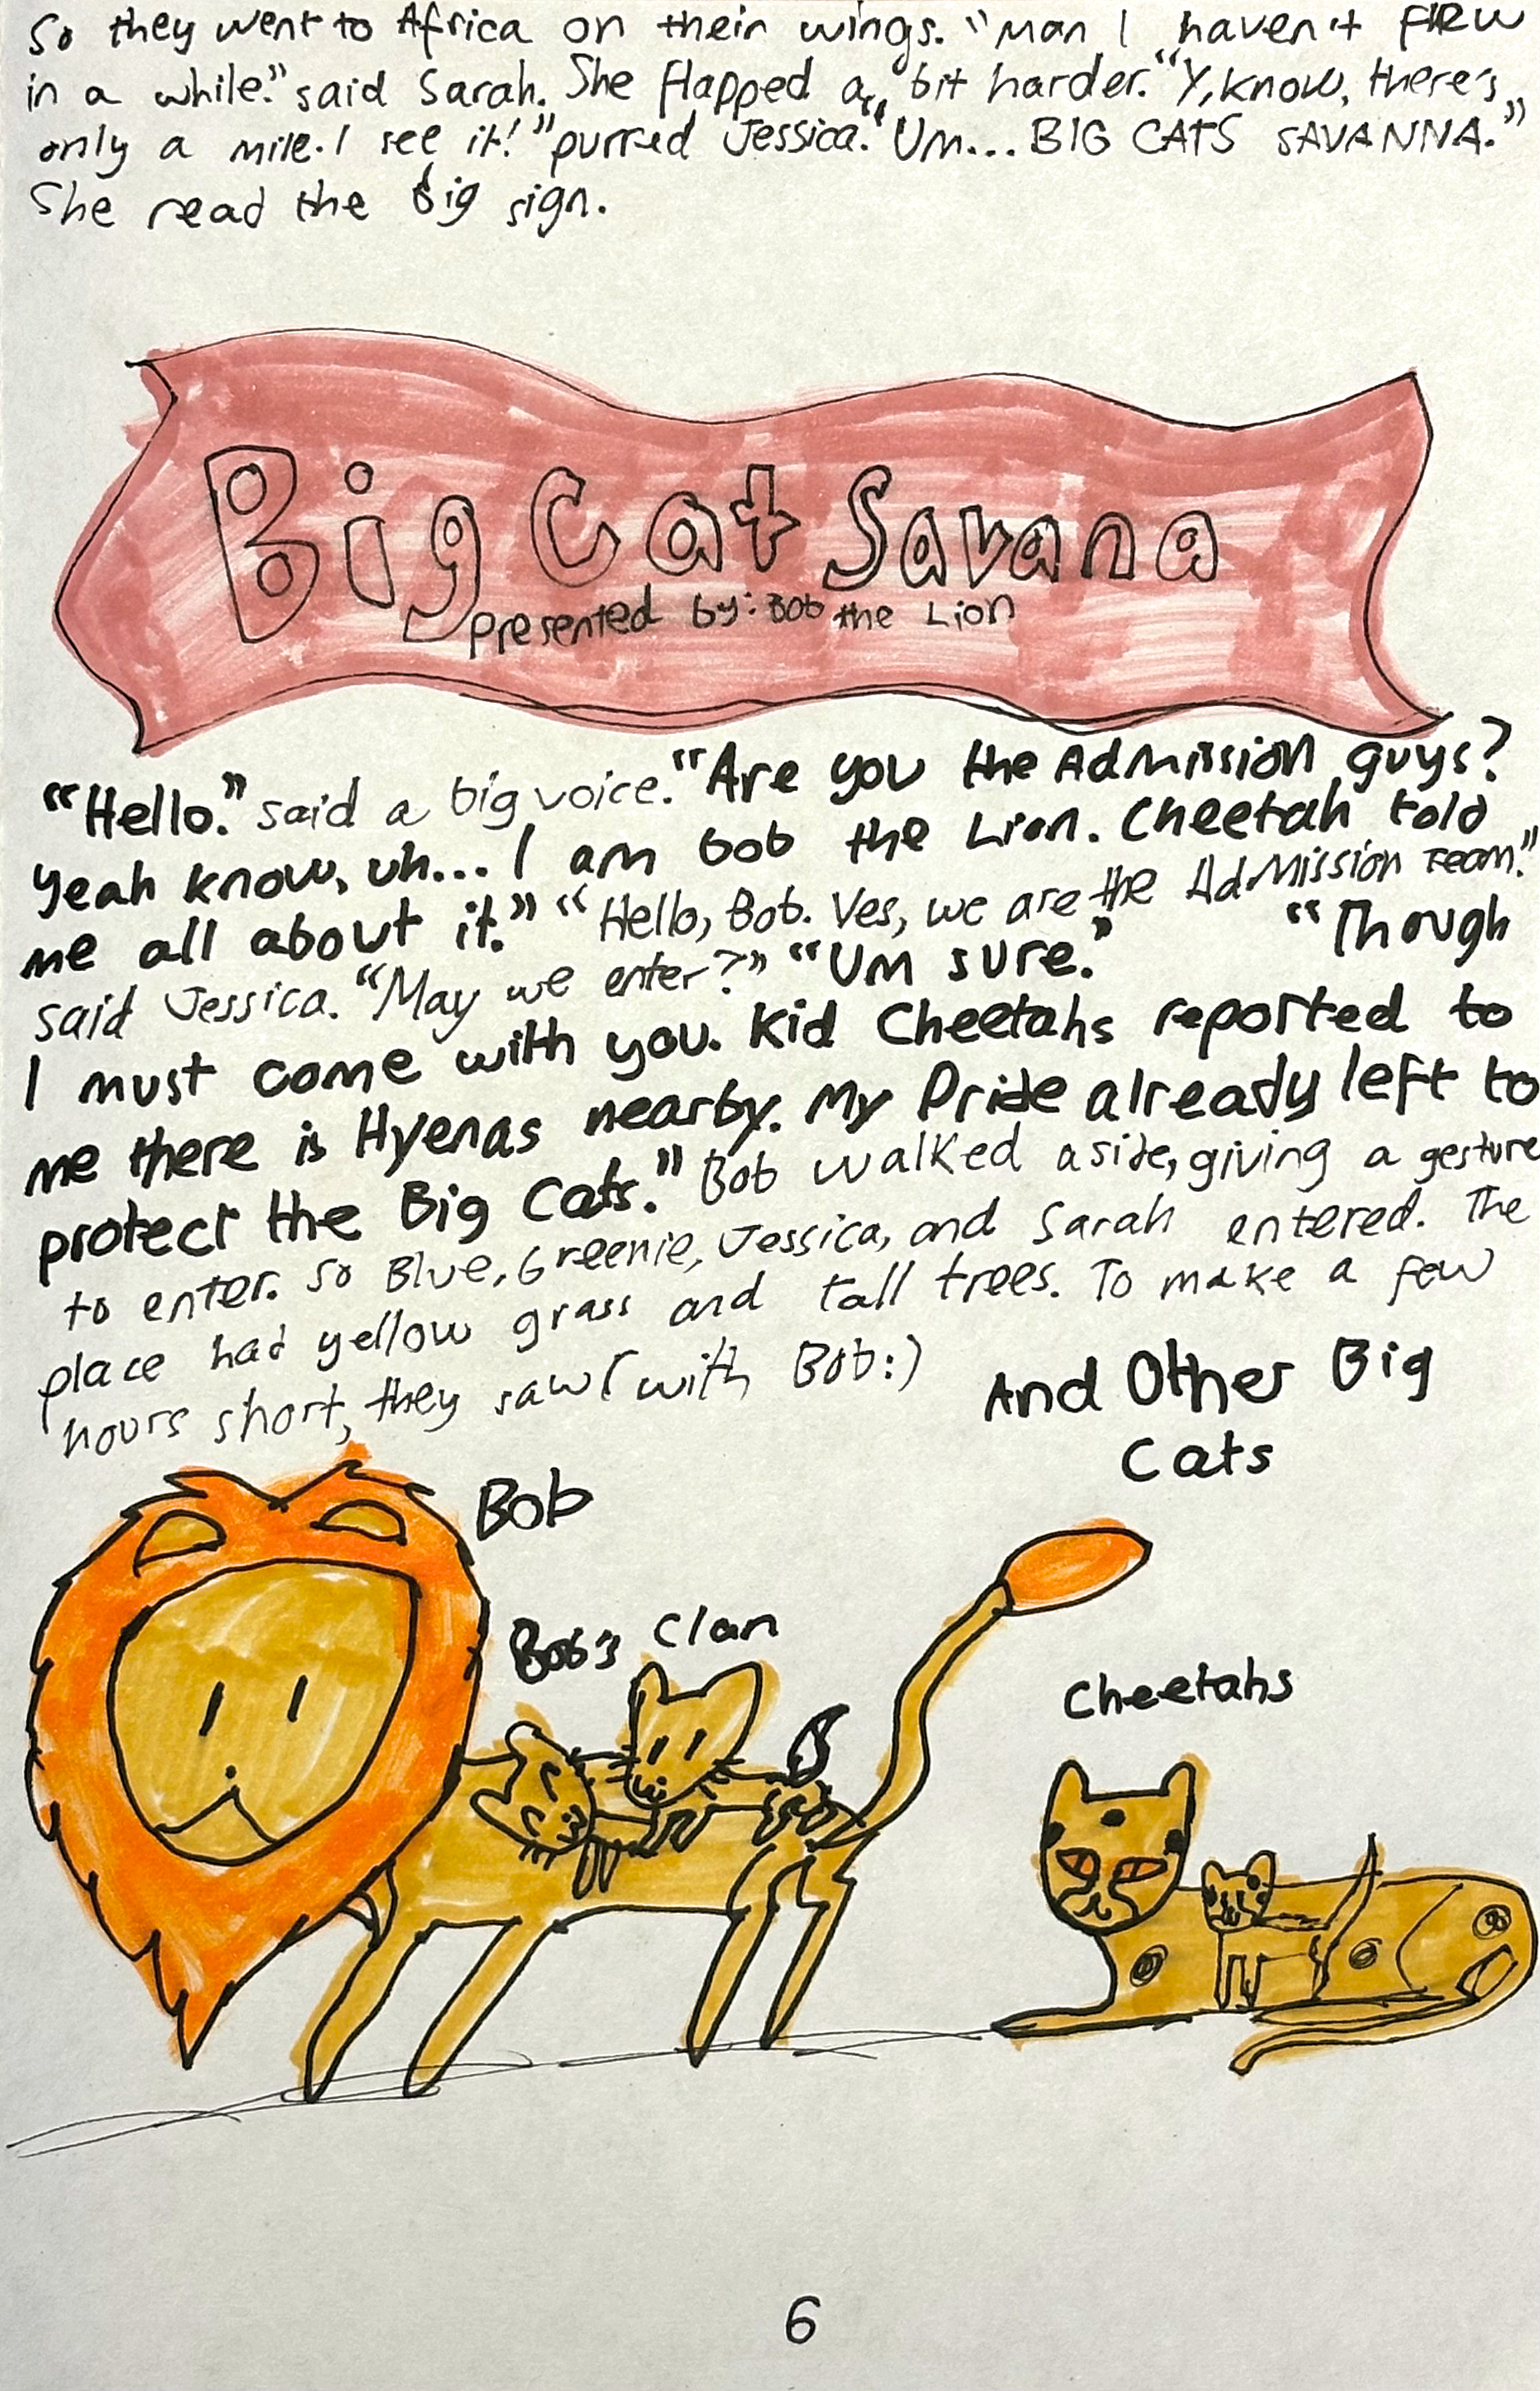 So they went to Africa on their wings. "Man I haven't flew
in a while." said Sarah. She flapped a bit harder. "Y,know, there's
only a mile. I see it!" purred Jessica. "Um... BIG CATS SAVANNA."
She read the big sign.
Big Cat Savana
presented by: Bob the Lion
"Hello." said a big voice. "Are you the Admission guys?
yeah know, uh... I am bob the Lion. Cheetah told
me all about it." "Hello, Bob. Yes, we are the AdMission Team."
said Jessica. "May we enter?" "Um sure." "Though
I must come with you. Kid Cheetahs reported to
me there is Hyenas nearby. My Pride already left to
protect the Big Cats." Bob walked aside, giving a gesture
to enter. So Blue, Greenie, Jessica, and Sarah entered. The
place had yellow grass and tall trees. To make a few
hours short, they saw (with Bob:)
And Other Big
Cats
Bob
Bob's Clan
Cheetahs
6